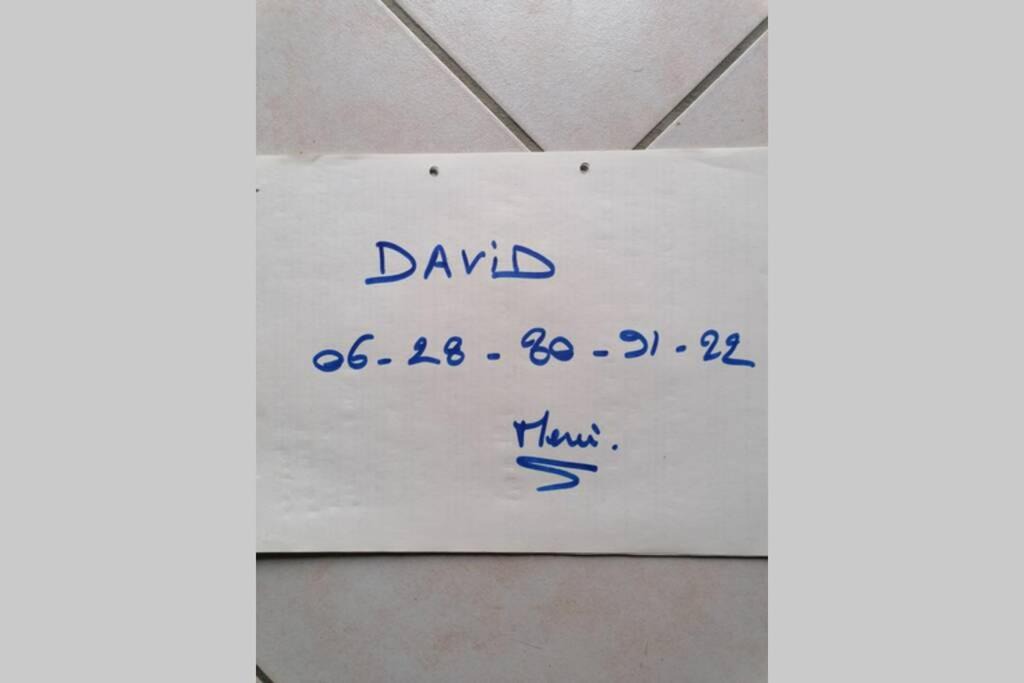 DAViD
06-28-80-91-22
Merci.